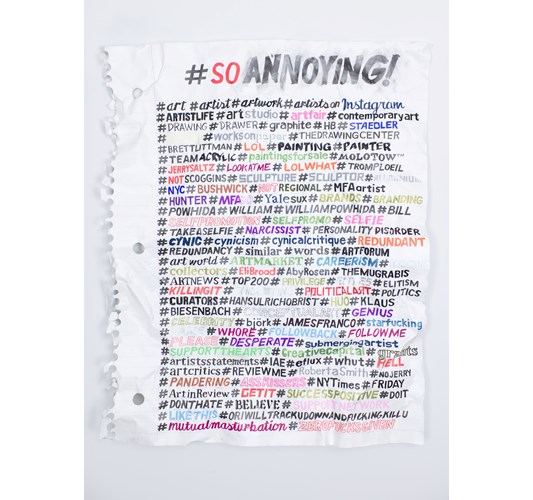 #SO ANNOYING!
#art #artist #artwork #artists on Instagram
#ARTISTLIFE #artstudio #artfair #contemporary art
#DRAWING #DRAWER #graphite #HB #STAEDLER
# #worksonpaper #THEDRAWINGCENTER
#BRETTUTTMAN #LOL #PAINTING #PAINTER
#TEAM ACRYLIC #paintingsforsale #MOLOTOW™
#JERRYSALTZ #LOOKATME #LOLWHAT #TROMPLOEIL
#NOTSCOGGINS #SCULPTURE #SCULPTOR
#NYC #BUSHWICK #NOTREGIONAL #MFAartist
#HUNTER #MFA #Yalesux #BRANDS #BRANDING
#POWHIDA #WILLIAM #WILLIAMPOWHIDA #BILL
#SELFPROMOTION #SELFPROMO #SELFIE
#TAKEASELFIE #NARCISSIST #PERSONALITY DISORDER
#CYNIC #cynicism #cynicalcritique #REDUNDANT
#REDUNDANCY #similar #words #ARTFORUM
#art world #ARTMARKET #CAREERISM #
#collectors #EliBroad #AbyRosen #THEMUGRABIS
#ARTNEWS #TOP200 #PRIVILEGE # #ELITISM
#KILLINGIT # #POLITICALART #POLITICS
#CURATORS #HANSULRICHOBRIST #HUO #KLAUS
#BIESENBACH #CONCEPTUALART #GENIUS
#CELEBRITY #björk #JAMESFRANCO #starfucking
# #WHORE #FOLLOWBACK #FOLLOW ME
#PLEASE #DESPERATE #submergingartist
#SUPPORTTHEARTS #Creativecapital #grants
#artistsstatements #IAE #eflux #whut #HELL
#artcritics #REVIEWME #RobertaSmith #NOJERRY
#PANDERING #ASSKISSERS #NYTimes #FRIDAY
#ArtinReview #GETIT #SUCCESSPOSITIVE #DOIT
#DONTHATE #BELIEVE #SUPPORTNETWORK
#LIKETHIS #ORIWILLTRACKUDOWNANDFUCKINGKILLU
#mutualmasturbation #ZEROFUCKSGIVEN